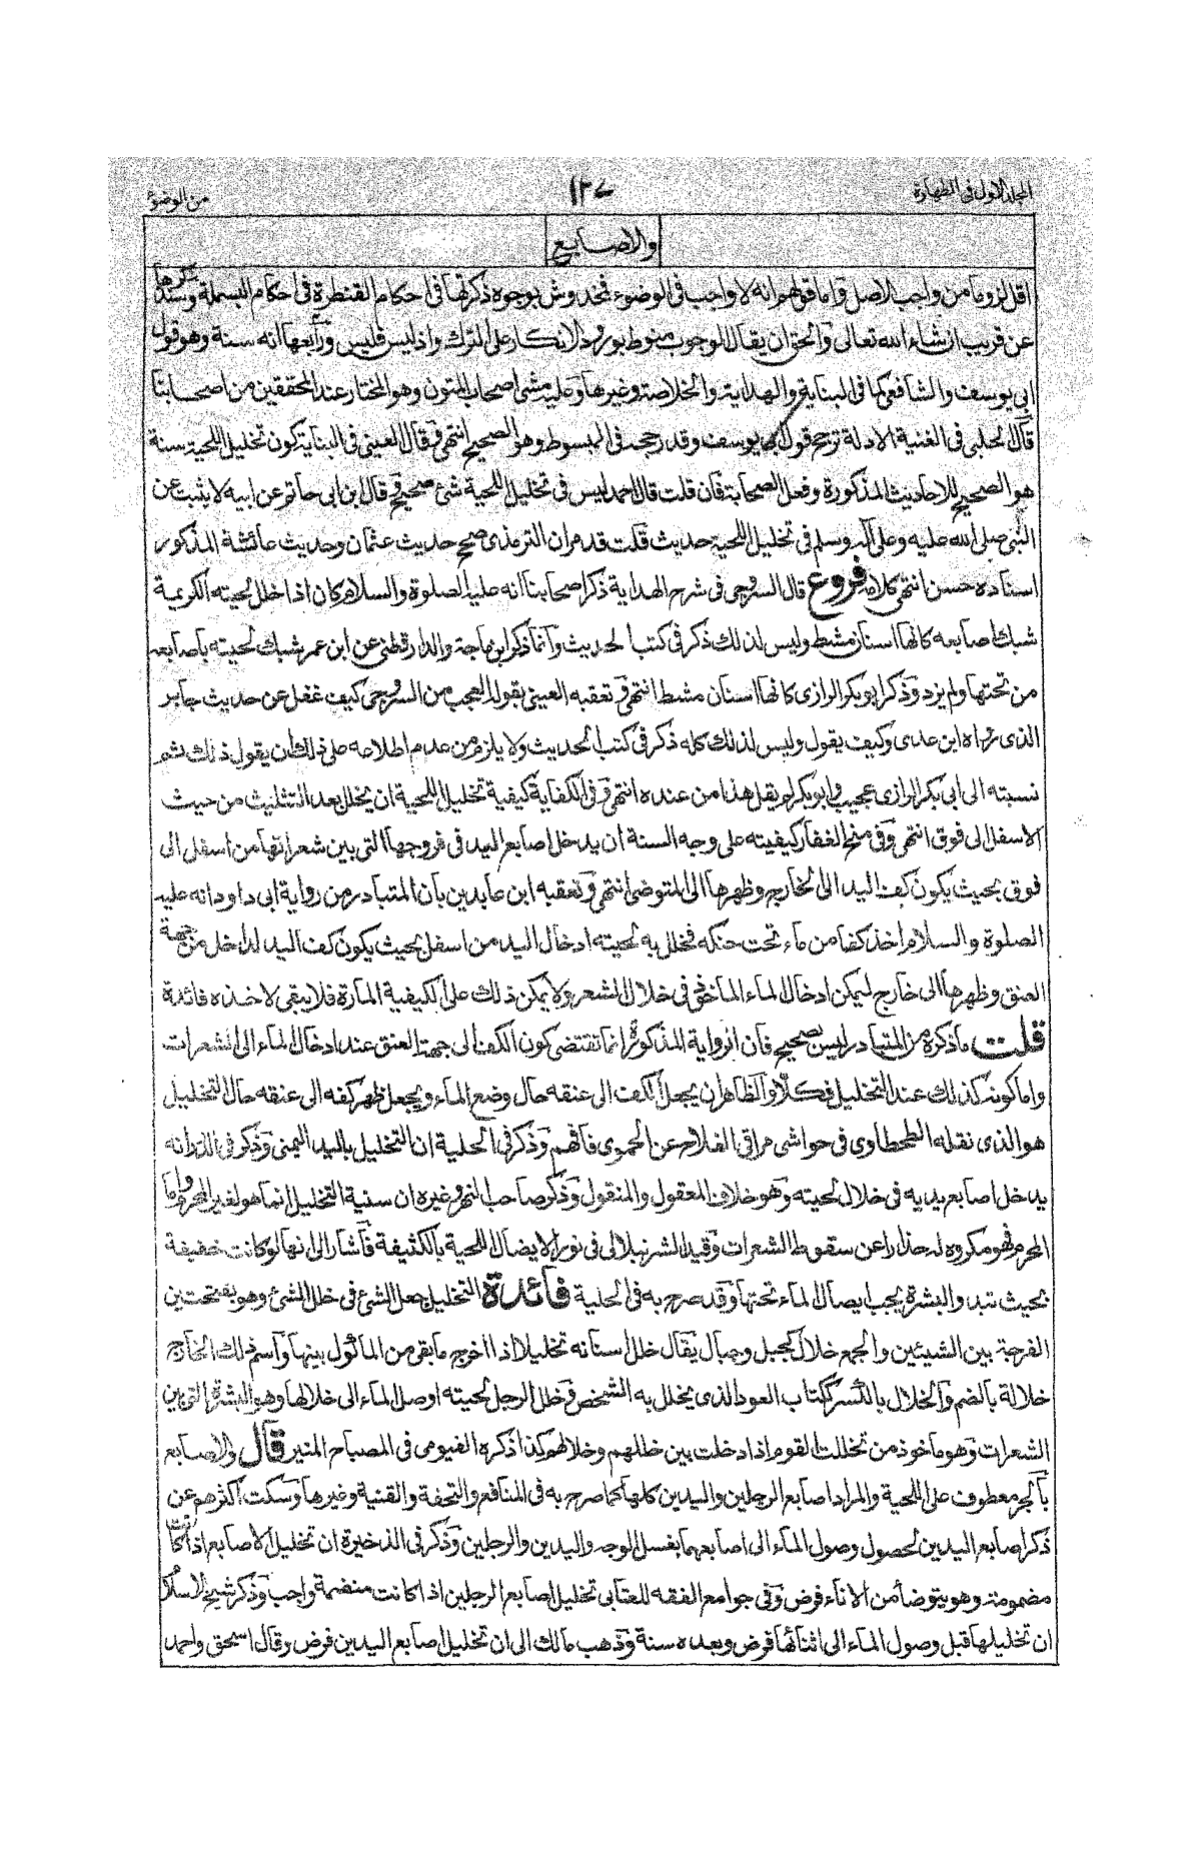 المجلد الاول فى الطهارة ١٢٧ من الوضوء
والاصابع
اقل لزوما من واجب الاصل واما قولهم انه لا واجب فى الوضوء فمخدوش بوجوه ذكرتها فى احكام القنطرة فى احكام البسملة وسنذكرها
عن قريب ان شاء الله تعالى والحق ان يقال الوجوب منوط بورود الانكار على الترك واذ ليس فليس ورابعها انه سنة وهو قول
ابى يوسف والشافعى كما فى البناية والهداية والخلاصة وغيرها وعليه مشى اصحاب المتون وهو المختار عند المحققين من اصحابنا
قال الحلبى فى الغنية الادلة ترجح قول ابى يوسف وقد رجحه فى المبسوط وهو الصحيح انتهى وقال العينى فى البناية كون تخليل اللحية سنة
هو الصحيح للاحاديث المذكورة وفعل الصحابة فان قلت قال احمد ليس فى تخليل اللحية شئ صحيح وقال ابن ابى حاتم عن ابيه لا يثبت عن
النبى صلى الله عليه وعلى آله وسلم فى تخليل اللحية حديث قلت قد مر ان الترمذى صحح حديث عثمان وحديث عائشة المذكور
اسناده حسن انتهى كلامه فروع قال السروجى فى شرح الهداية ذكر اصحابنا انه عليه الصلوة والسلام كان اذا خلل لحيته الكريمة
شبك اصابعه كانها اسنان مشط وليس لذلك ذكر فى كتب الحديث وانما ذكر ابن ماجة والدارقطنى عن ابن عمر شبك لحيته باصابعه
من تحتها ولم يزد وذكر ابو بكر الرازى كانها اسنان مشط انتهى وتعقبه العينى بقوله العجب من السروجى كيف غفل عن حديث جابر
الذى رواه ابن عدى وكيف يقول وليس لذلك كله ذكر فى كتب الحديث ولا يلزم من عدم اطلاعه على ذلك ان يقول ذلك ثم
نسبته الى ابى بكر الرازى عجيب وابو بكر لم يقل هذا من عنده انتهى وفى الكفاية كيفية تخليل اللحية ان يخلل بعد التثليث من حيث
الاسفل الى فوق انتهى وفى منح الغفار كيفيته على وجه السنة ان يدخل اصابع اليد فى فروجها التى بين شعراتها من اسفل الى
فوق بحيث يكون كف اليد الى الخارج وظهرها الى المتوضى انتهى وتعقبه ابن عابدين بان المتبادر من رواية ابى داود انه عليه
الصلوة والسلام اخذ كفا من ماء تحت حنكه فخلل به لحيته ادخال اليد من اسفل بحيث يكون كف اليد لداخل من جهة
العنق وظهرها الى خارج ليمكن ادخال الماء الماخوذ فى خلال الشعر ولا يمكن ذلك على الكيفية المارة فلا يبقى لاخذه فائدة
قلت ما ذكره من المتبادر ليس بصحيح فان الرواية المذكورة انما تقتضى كون الكف الى جهة العنق عند ادخال الماء الى الشعرات
واما كونه كذلك عند التخليل فكلا والظاهر ان يجعل الكف الى عنقه حال وضع الماء ويجعل ظهر كفه الى عنقه حال التخليل
هو الذى نقله الطحطاوى فى حواشى مراقى الفلاح عن الحموى فافهم وذكر فى الحلية ان التخليل باليد اليمنى وذكر فى الدر انه
يدخل اصابع يديه فى خلال لحيته وهو خلاف المعقول والمنقول وذكر صاحب النهر وغيره ان سنية التخليل انما هو لغير المحرم واما
المحرم فهو مكروه له حذارا عن سقوط الشعرات وقيد الشرنبلالى فى نور الايضاح اللحية بالكثيفة فاشار الى انها لو كانت خفيفة
بحيث تبدو البشرة يجب ايصال الماء تحتها وقد صرح به فى الحلية فائدة التخليل جعل الشئ فى خلل الشئ وهو بفتحتين
الفرجة بين الشيئين والجمع خلال كجبل وجبال يقال خلل اسنانه تخليلا اذا اخرج ما بقى من المأكول بينها واسم ذلك الخارج
خلالة بالضم والخلال بالكسر ككتاب العود الذى يخلل به الشخص وخلل الرجل لحيته اوصل الماء الى خلالها وهو البشرة التى بين
الشعرات وهو ماخوذ من تخللت القوم اذا دخلت بين خللهم وخلالهم كذا ذكره الفيومى فى المصباح المنير قال والاصابع
بالجر معطوف على اللحية والمراد اصابع الرجلين واليدين كلها كما صرح به فى المنافع والتحفة والقنية وغيرها وسكت اكثرهم عن
ذكر اصابع اليدين لحصول وصول الماء الى اصابعهما بغسل الوجه واليدين والرجلين وذكر فى الذخيرة ان تخليل الاصابع اذا كانت
مضمومة وهو يتوضأ من الاناء فرض وفى جوامع الفقه للعتابى تخليل اصابع الرجلين اذا كانت منضمة واجب وذكر شيخ الاسلام
ان تخليلها قبل وصول الماء الى اثنائها فرض وبعده سنة وذهب مالك الى ان تخليل اصابع اليدين فرض وقال اسحق واحمد